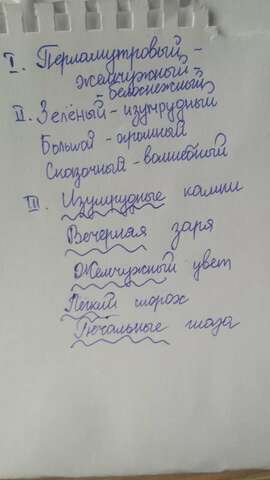 I. Перламутровый -
жемчужный -
- белоснежный
II. Зелёный - изумрудный
Большой - огромный
Сказочный - волшебный
III. Изумрудные камни
Вечерняя заря
Жемчужный цвет
Легкий шорох
Печальные глаза